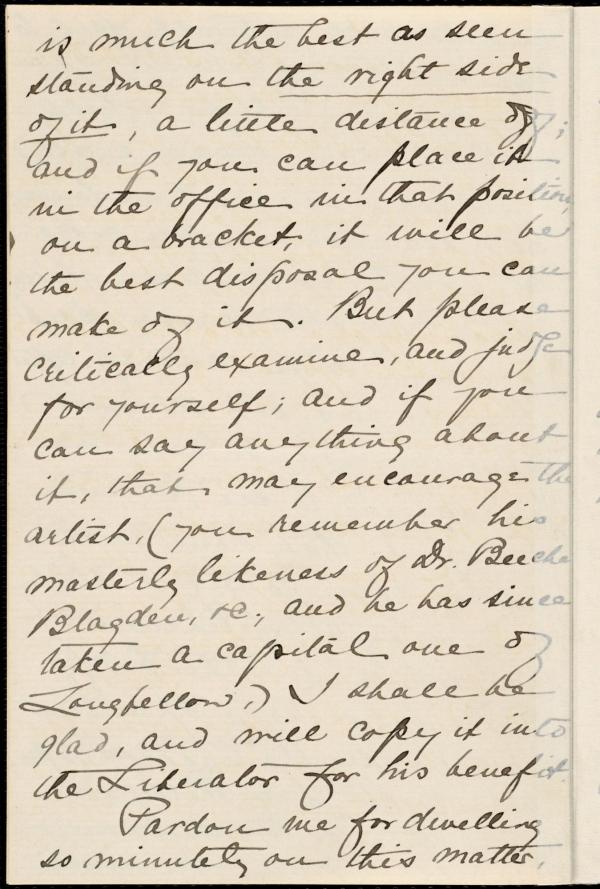 is much the best as seen
standing on the right side
of it, a little distance off;
and if you can place it
in the office in that position,
on a bracket, it will be
the best disposal you can
make of it. But please
critically examine, and judge
for yourself; and if you
can say anything about
it, that may encourage the
artist, (you remember his
masterly likeness of Dr. Beecher
Blagden, &c., and he has since
taken a capital one of
Longfellow,) I shall be
glad, and will copy it into
the Liberator for his benefit.
Pardon me for dwelling
so minutely on this matter.